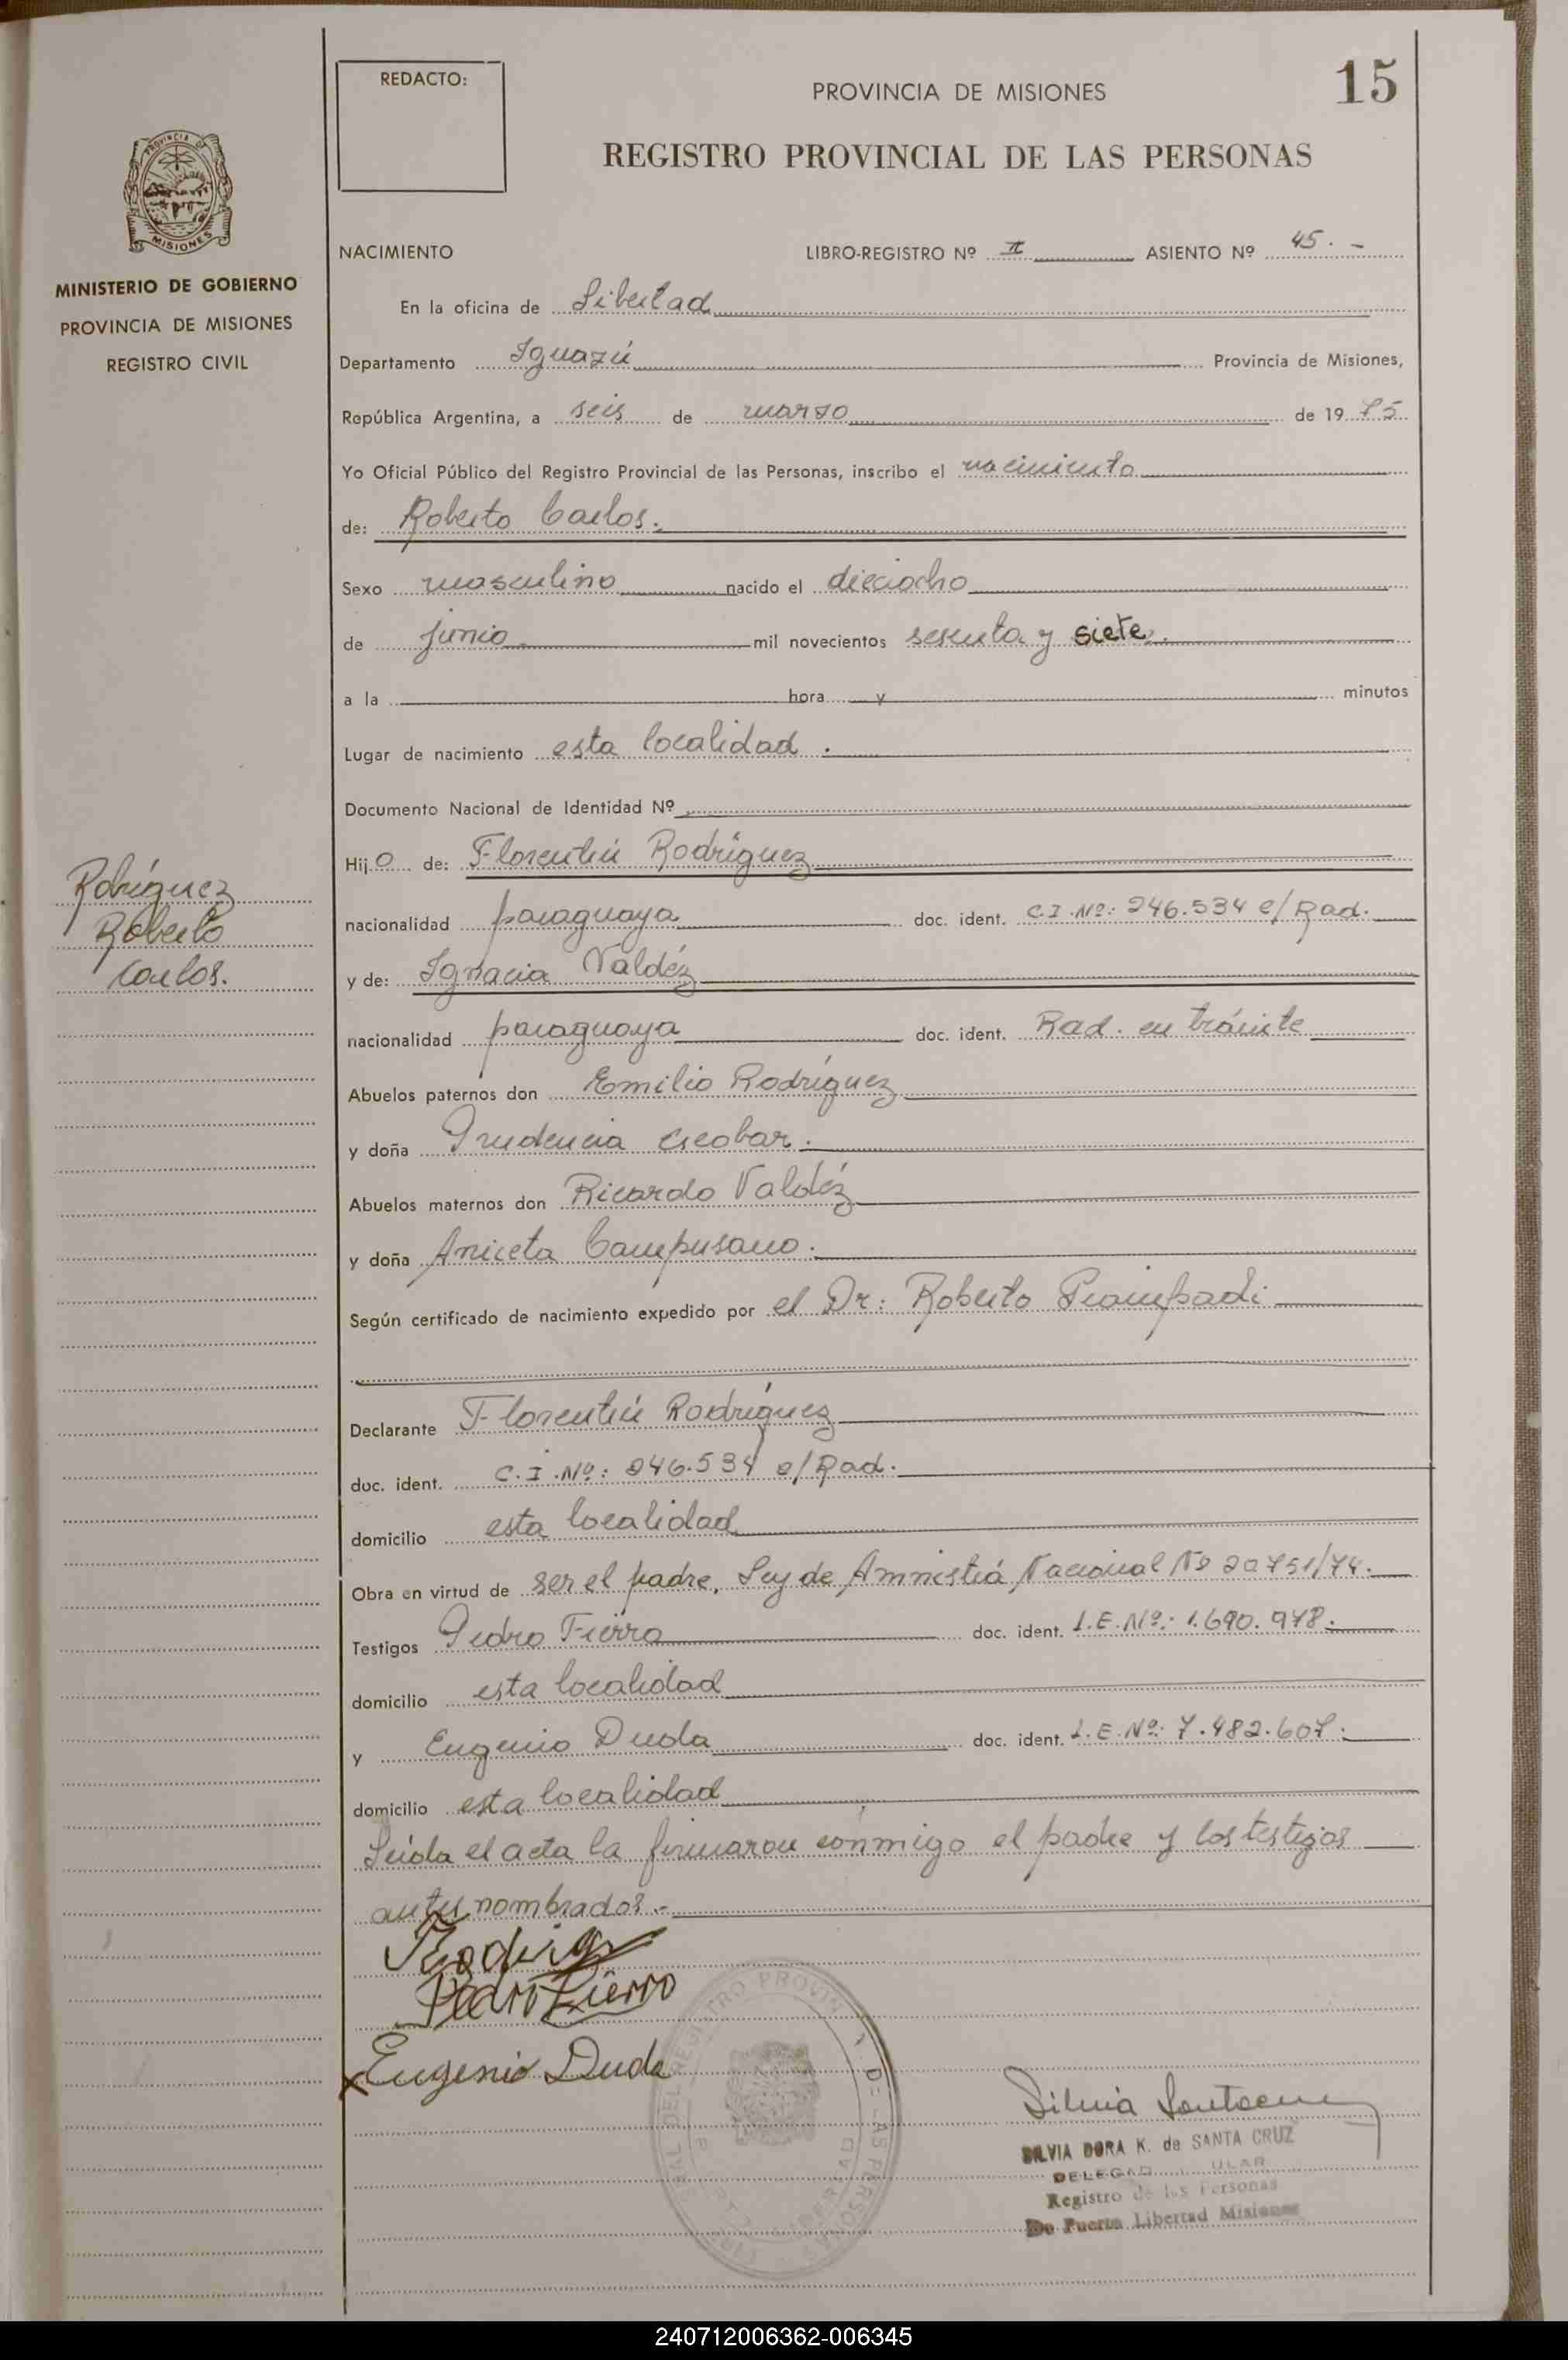 15
REDACTO:
PROVINCIA DE MISIONES
REGISTRO PROVINCIAL DE LAS PERSONAS
PROVINCIA DE
MISIONES
MINISTERIO DE GOBIERNO
PROVINCIA DE MISIONES
REGISTRO CIVIL
NACIMIENTO LIBRO-REGISTRO Nº II ASIENTO Nº 45.-
En la oficina de Libertad
Departamento Iguazú Provincia de Misiones,
República Argentina, a seis de marzo de 1975
Yo Oficial Público del Registro Provincial de las Personas, inscribo el nacimiento
de: Roberto Carlos.
Sexo masculino nacido el dieciocho
de junio mil novecientos sesenta y siete.
a la hora y minutos
Lugar de nacimiento esta localidad.
Documento Nacional de Identidad Nº
Hijo de: Florentín Rodríguez
Rodríguez
Roberto
Carlos.
nacionalidad paraguaya doc. ident. C.I.Nº: 246.534 c/Rad.
y de: Ignacia Valdéz
nacionalidad paraguaya doc. ident. Rad. en trámite
Abuelos paternos don Emilio Rodríguez
y doña Prudencia Escobar.
Abuelos maternos don Ricardo Valdéz
y doña Aniceta Campusano.
Según certificado de nacimiento expedido por el Dr: Roberto
Declarante Florentín Rodríguez
doc. ident. C.I.Nº: 246.534 c/Rad.
domicilio esta localidad
Obra en virtud de ser el padre, Ley de Amnistía Nacional Nº 20751/74.
Testigos Pedro Fierro doc. ident. L.E.Nº: 1.690.978.
domicilio esta localidad
y Eugenio Duda doc. ident. L.E.Nº: 7.482.607.
domicilio esta localidad
Leída el acta la firmaron conmigo el padre y los testigos
antes nombrados.-
Pedro Fierro
Eugenio Duda
Silvia
SILVIA DORA K. de SANTA CRUZ
Registro de las Personas
De Puerto Libertad Misiones
240712006362-006345